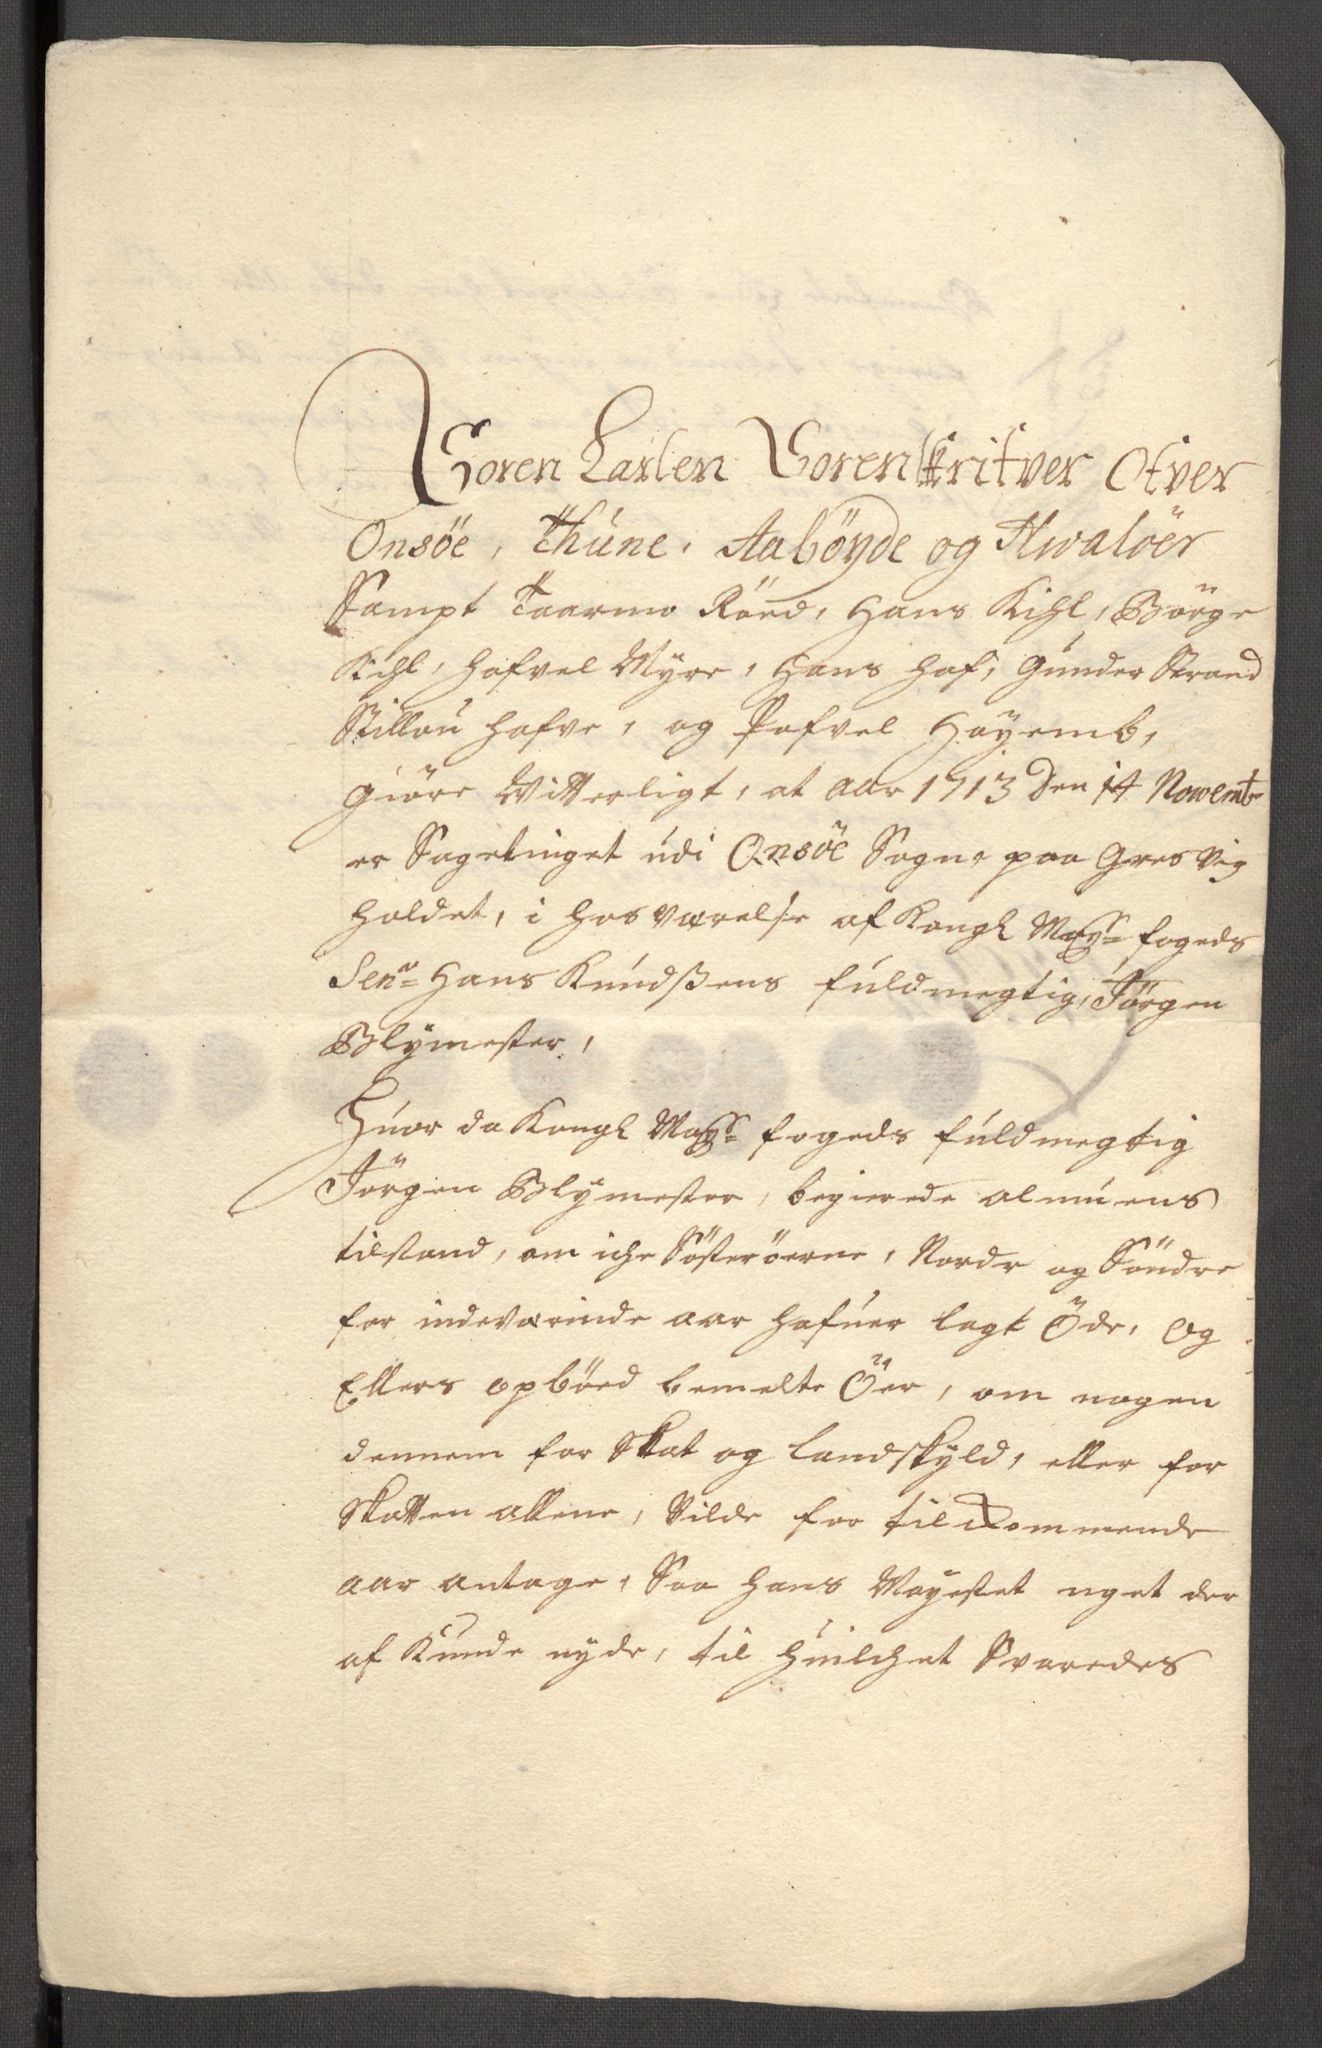 Søren Larsen Sorenskrifver Ofver
Onsöe, Thune, Aabøyde og Hwaløer
Sampt Taarmo Röed, Hans Kihl, Börge
Kihl, Hafvel Myre, Hans Haf, Gunder Strand
Stillau Hafve, og Pofvel Høyemb,
Giöre Witterligt, at aar 1713 den 14 Novemb
er Sagetinget udi Onsöe Sogn, paa Gresvig
holdet, i hosværelse af Kongl May: fogeds
Senr Hans Knudssens fuldmegtig, Jörgen
Blymester,
Huor da Kongl May: fogeds fuldmegtig
Jörgen Blymester, begierede almuens
tilstand, om iche Söster öerne, Nordr og Söndre
for indeværinde aar hafuer lagt Öde, og
Ellers opböed bemelte Öer, om nogen
dennem for Skat og landskyld, eller for
Skatten allene, Vilde for tilkommende
aar antage, Saa hans Mayestet nget der
af Kunde nyde, til huilchet Svaredes